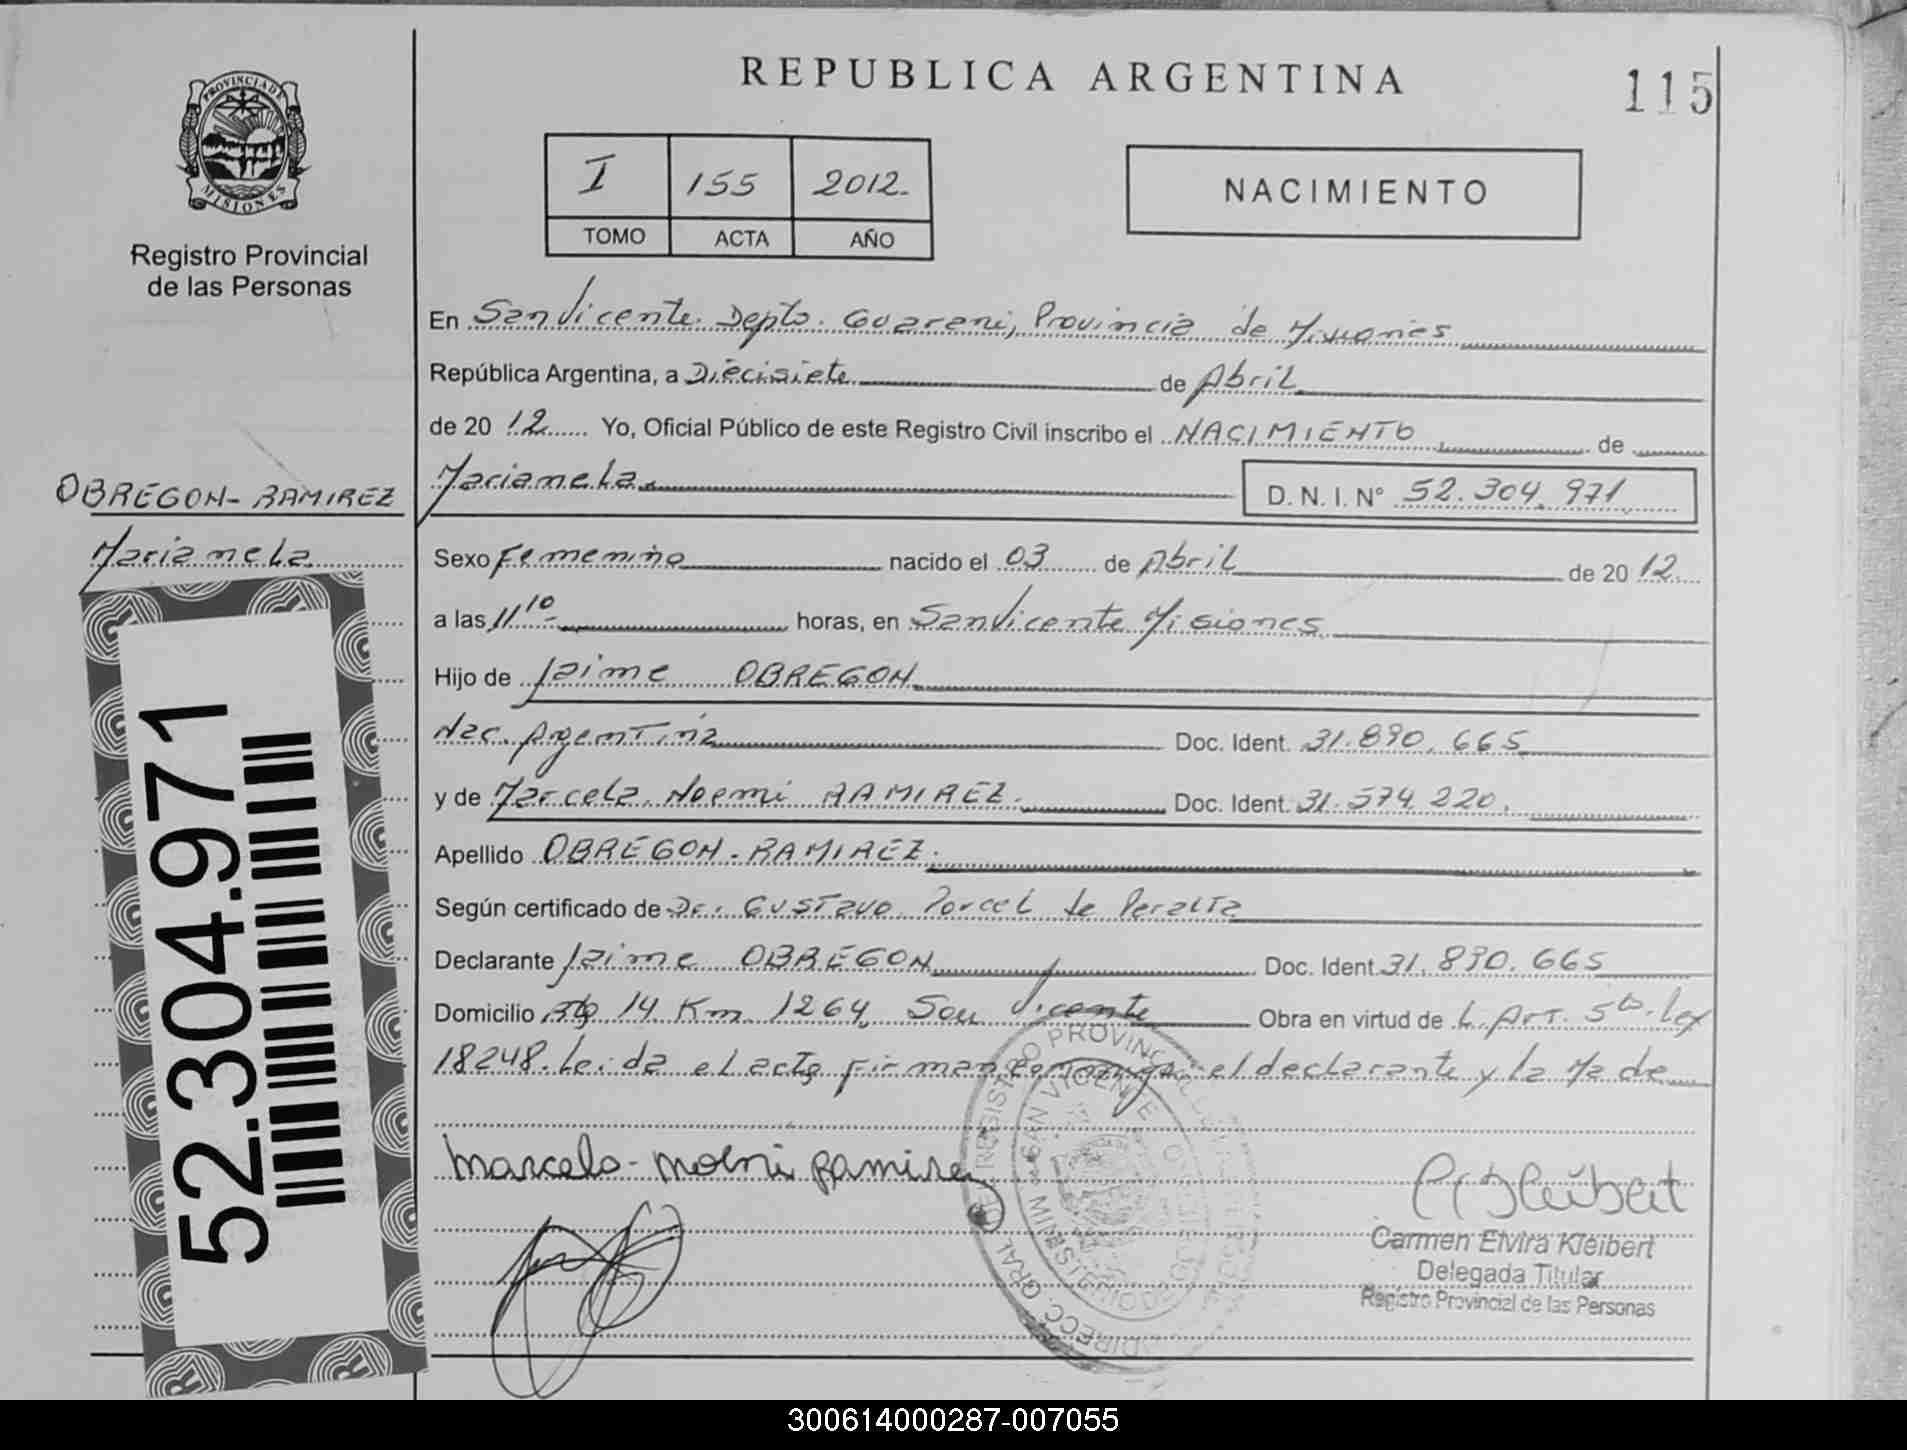 REPUBLICA ARGENTINA
115
PROVINCIA DE
MISIONES
Registro Provincial
de las Personas
I 155 2012.
TOMO ACTA AÑO
NACIMIENTO
En San Vicente. Depto. Guarani, Provincia de Misiones
República Argentina, a Diecisiete de Abril
de 20 12 Yo, Oficial Público de este Registro Civil inscribo el NACIMIENTO de
Marianela. D. N. I. N° 52.304.971
OBREGON-RAMIREZ
Marianela
Sexo Femenino nacido el 03 de Abril de 20 12
a las 11 10 horas, en San Vicente Misiones
Hijo de Jaime OBREGON
Nac. Argentina Doc. Ident. 31.890.665
y de Marcela Noemi RAMIREZ. Doc. Ident. 31.574.220.
Apellido OBREGON-RAMIREZ.
Según certificado de Dr. Gustavo Porcel de Peralta
Declarante Jaime OBREGON Doc. Ident. 31.890.665
Domicilio Rta 14 Km 1264, San Vicente Obra en virtud de L. Art. 5to. Ley
18248. Leida el acta firman conmigo el declarante y la Madre
52.304.971
Marcela-Noemi Ramirez
REGISTRO PROVINCIAL
SAN VICENTE
MINISTERIO DE GOBIERNO
Carmen Elvira Kleibert
Delegada Titular
Registro Provincial de las Personas
300614000287-007055